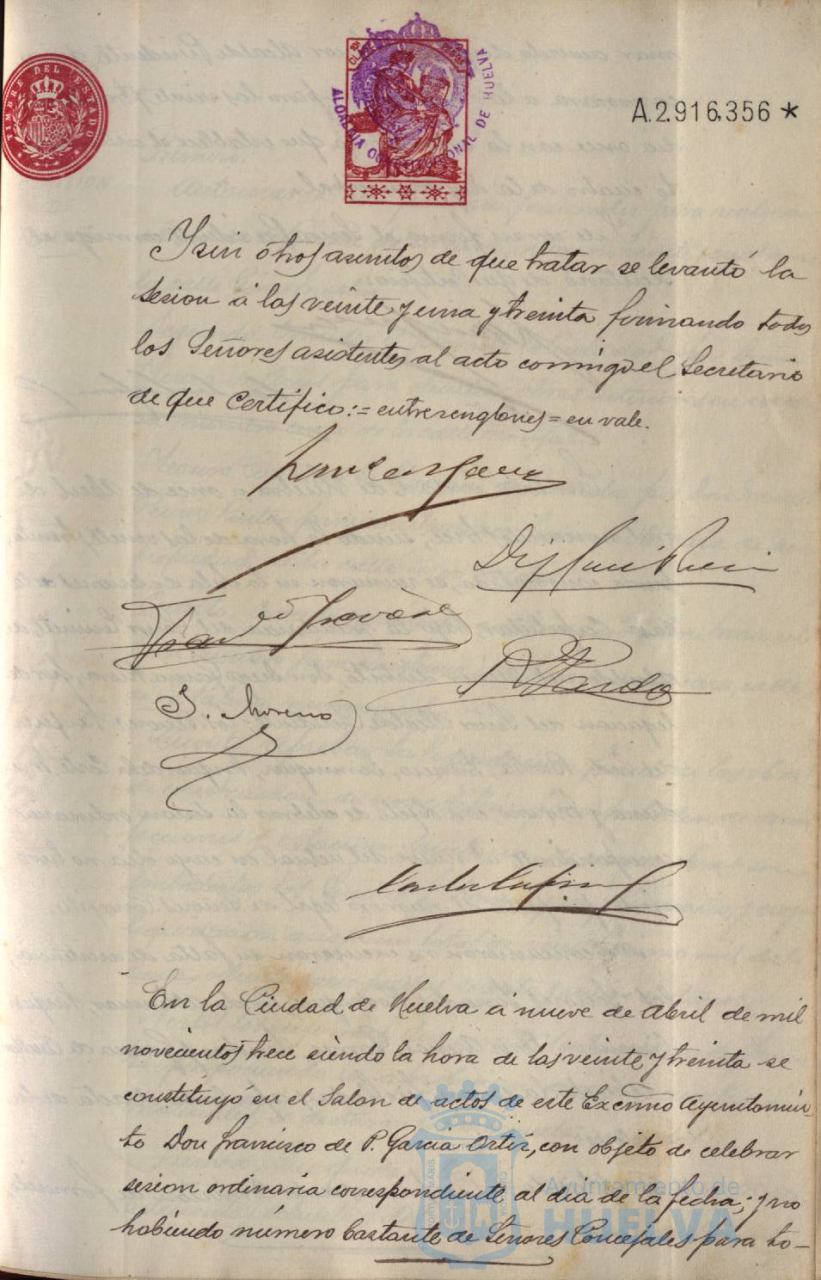 TIMBRE DEL ESTADO
ALCALDIA CONSTITUCIONAL DE HUELVA
A.2.916,356 *
Y sin ótros asuntos de que tratar se levantó la
sesion á las veinte y una y treinta firmando todos
los Señores asistentes al acto conmigo el Secretario
de que certifico:= entrerenglones = en vale.
J. Moreno
R Pardo
En la Ciudad de Huelva á nueve de Abril de mil
novecientos trece siendo la hora de las veinte y treinta se
constituyó en el Salon de actos de este Excmo Ayuntamien-
to Don Francisco de P. Garcia Ortiz, con objeto de celebrar
sesion ordinaria correspondiente al dia de la fecha; y no
habiendo número bastante de Señores Concejales para to-
Ayuntamiento de
HUELVA